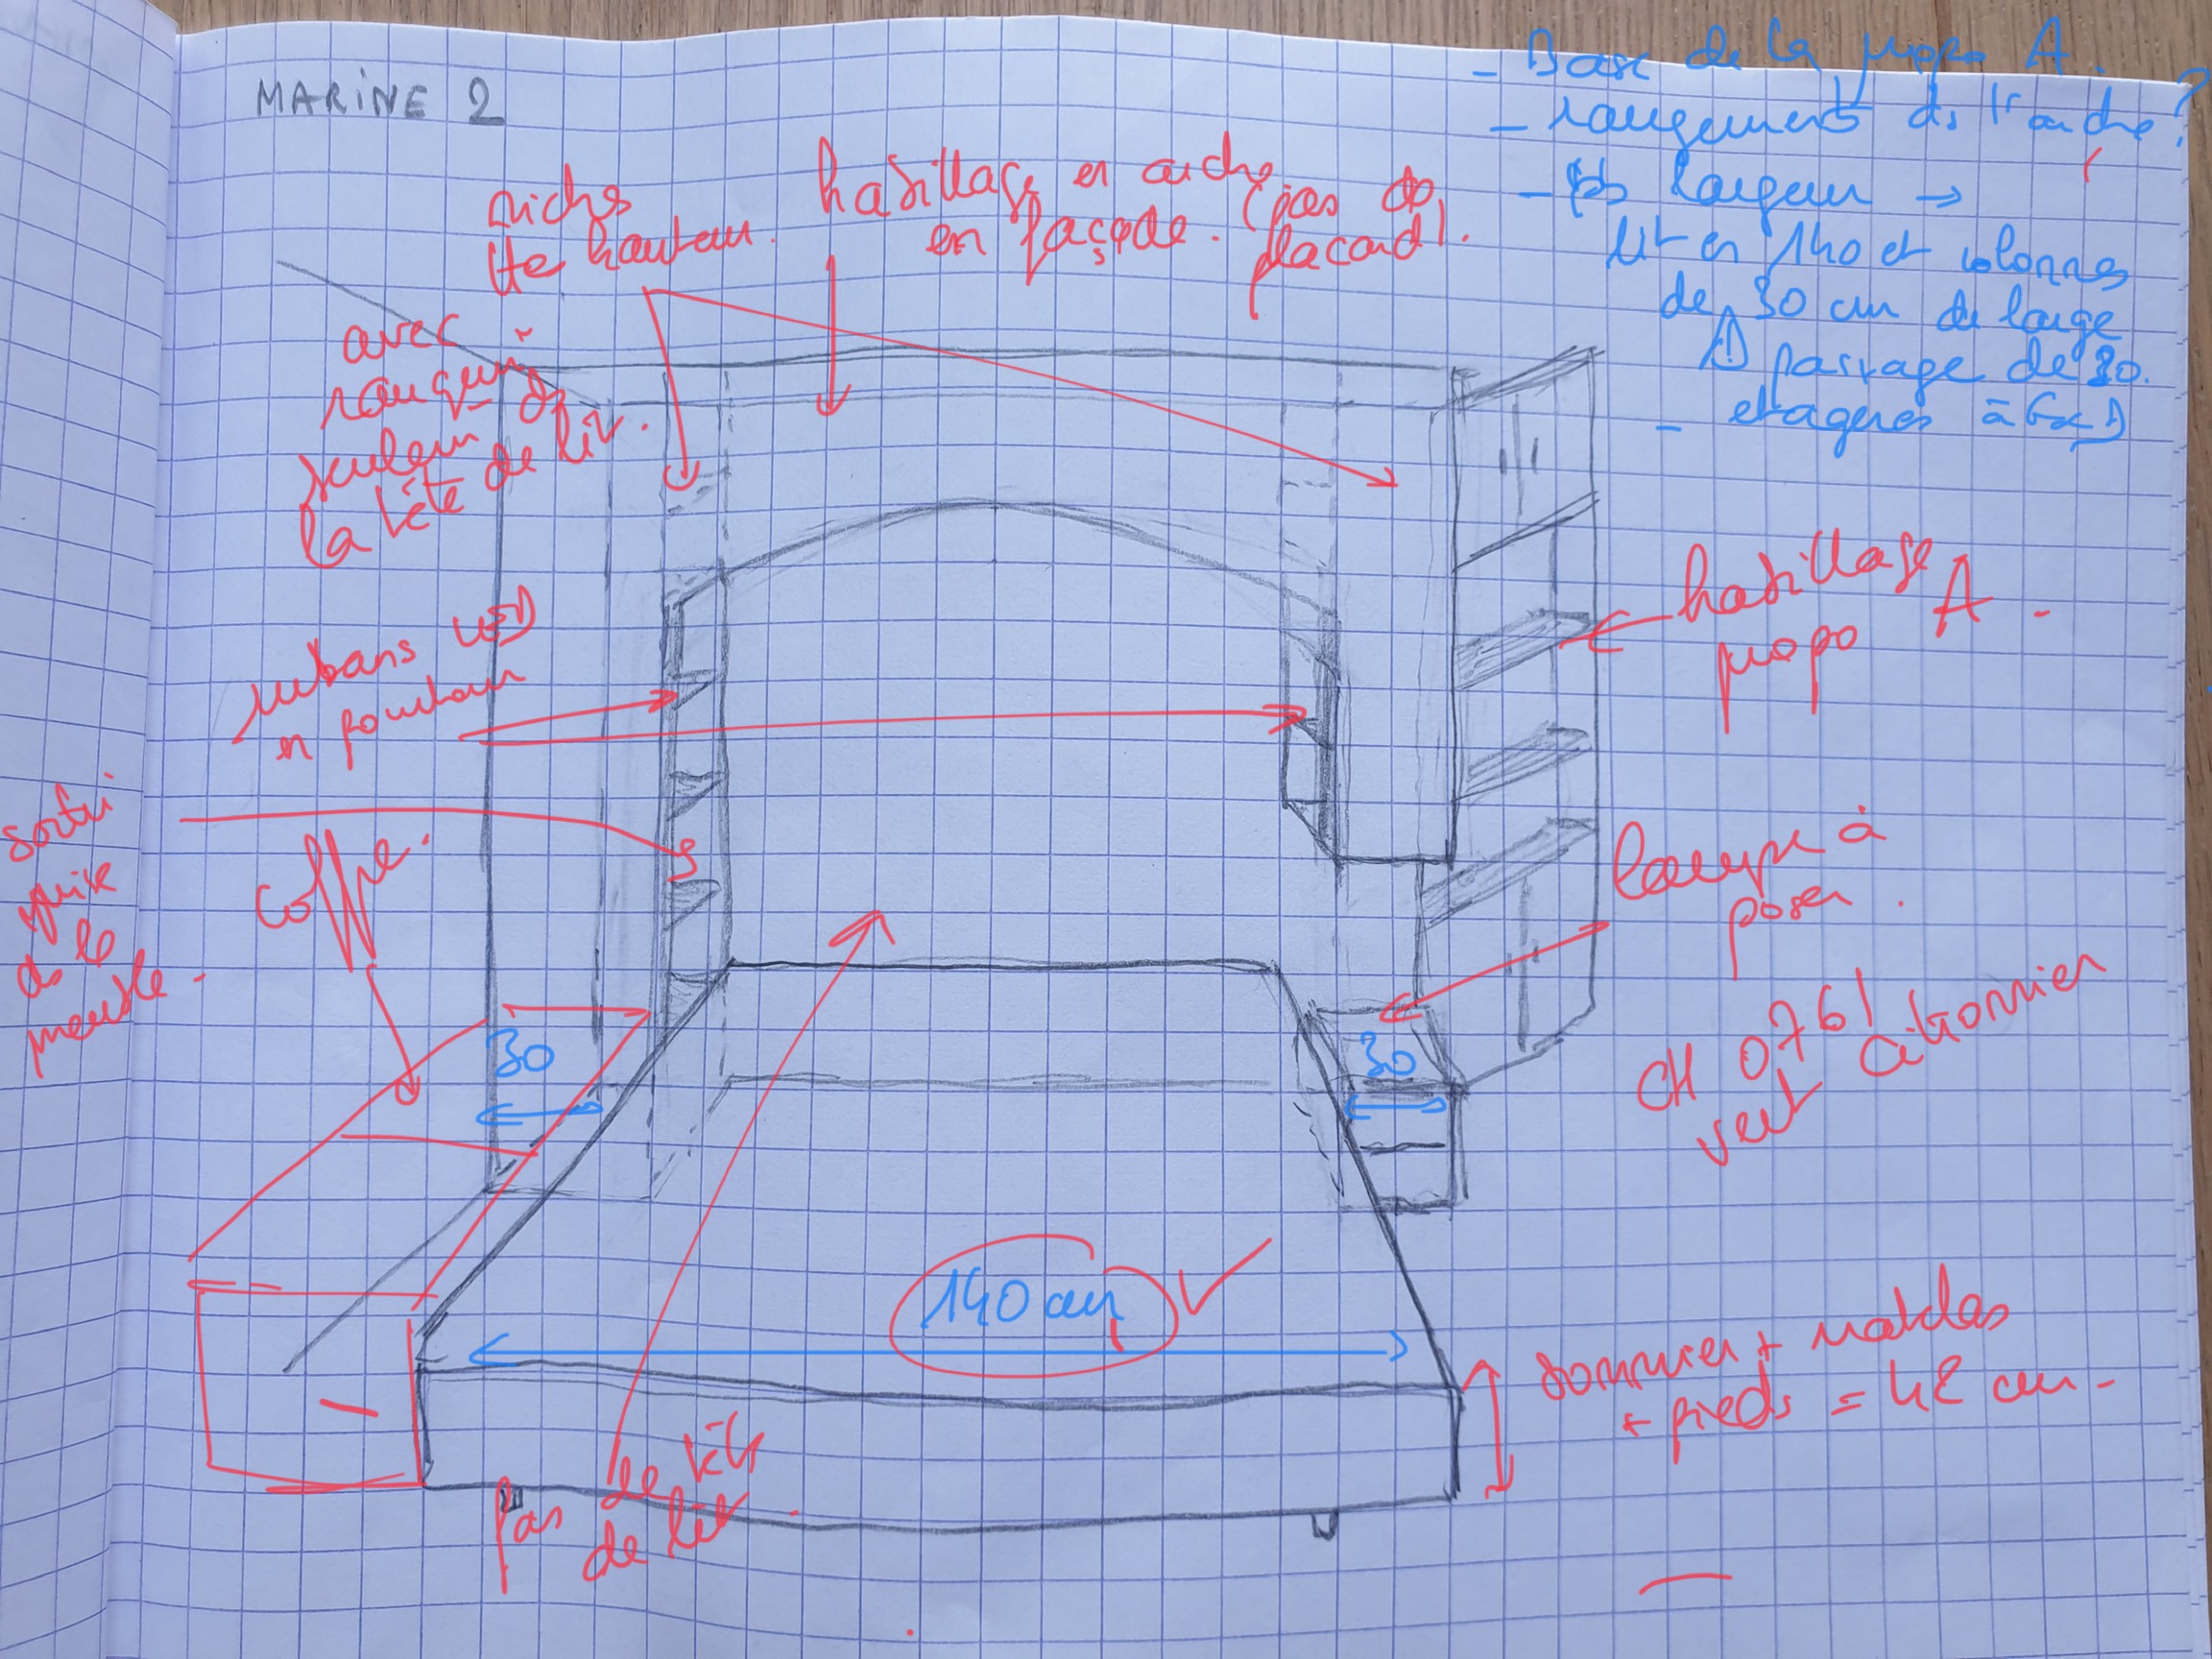 MARINE 2
- Base de la propo A.
- rangements ds l'arche ?
- pb largeur →
lit en 140 et colonnes
de 30 cm de large
passage de 30.
- etageres à G & D
niches
tte hauteur.
habillage en arche
en façade. (pas de
placard).
avec
rangemt ds
la tête de lit.
rubans LED
en pourtour
habillage
propo A.
sortie
prise
ds le
meuble.
coffre.
lampe à
poser.
CH 0761
vert citronnier
30
30
140 cm
sommier + matelas
+ pieds = 42 cm.
Pas de tête
de lit.